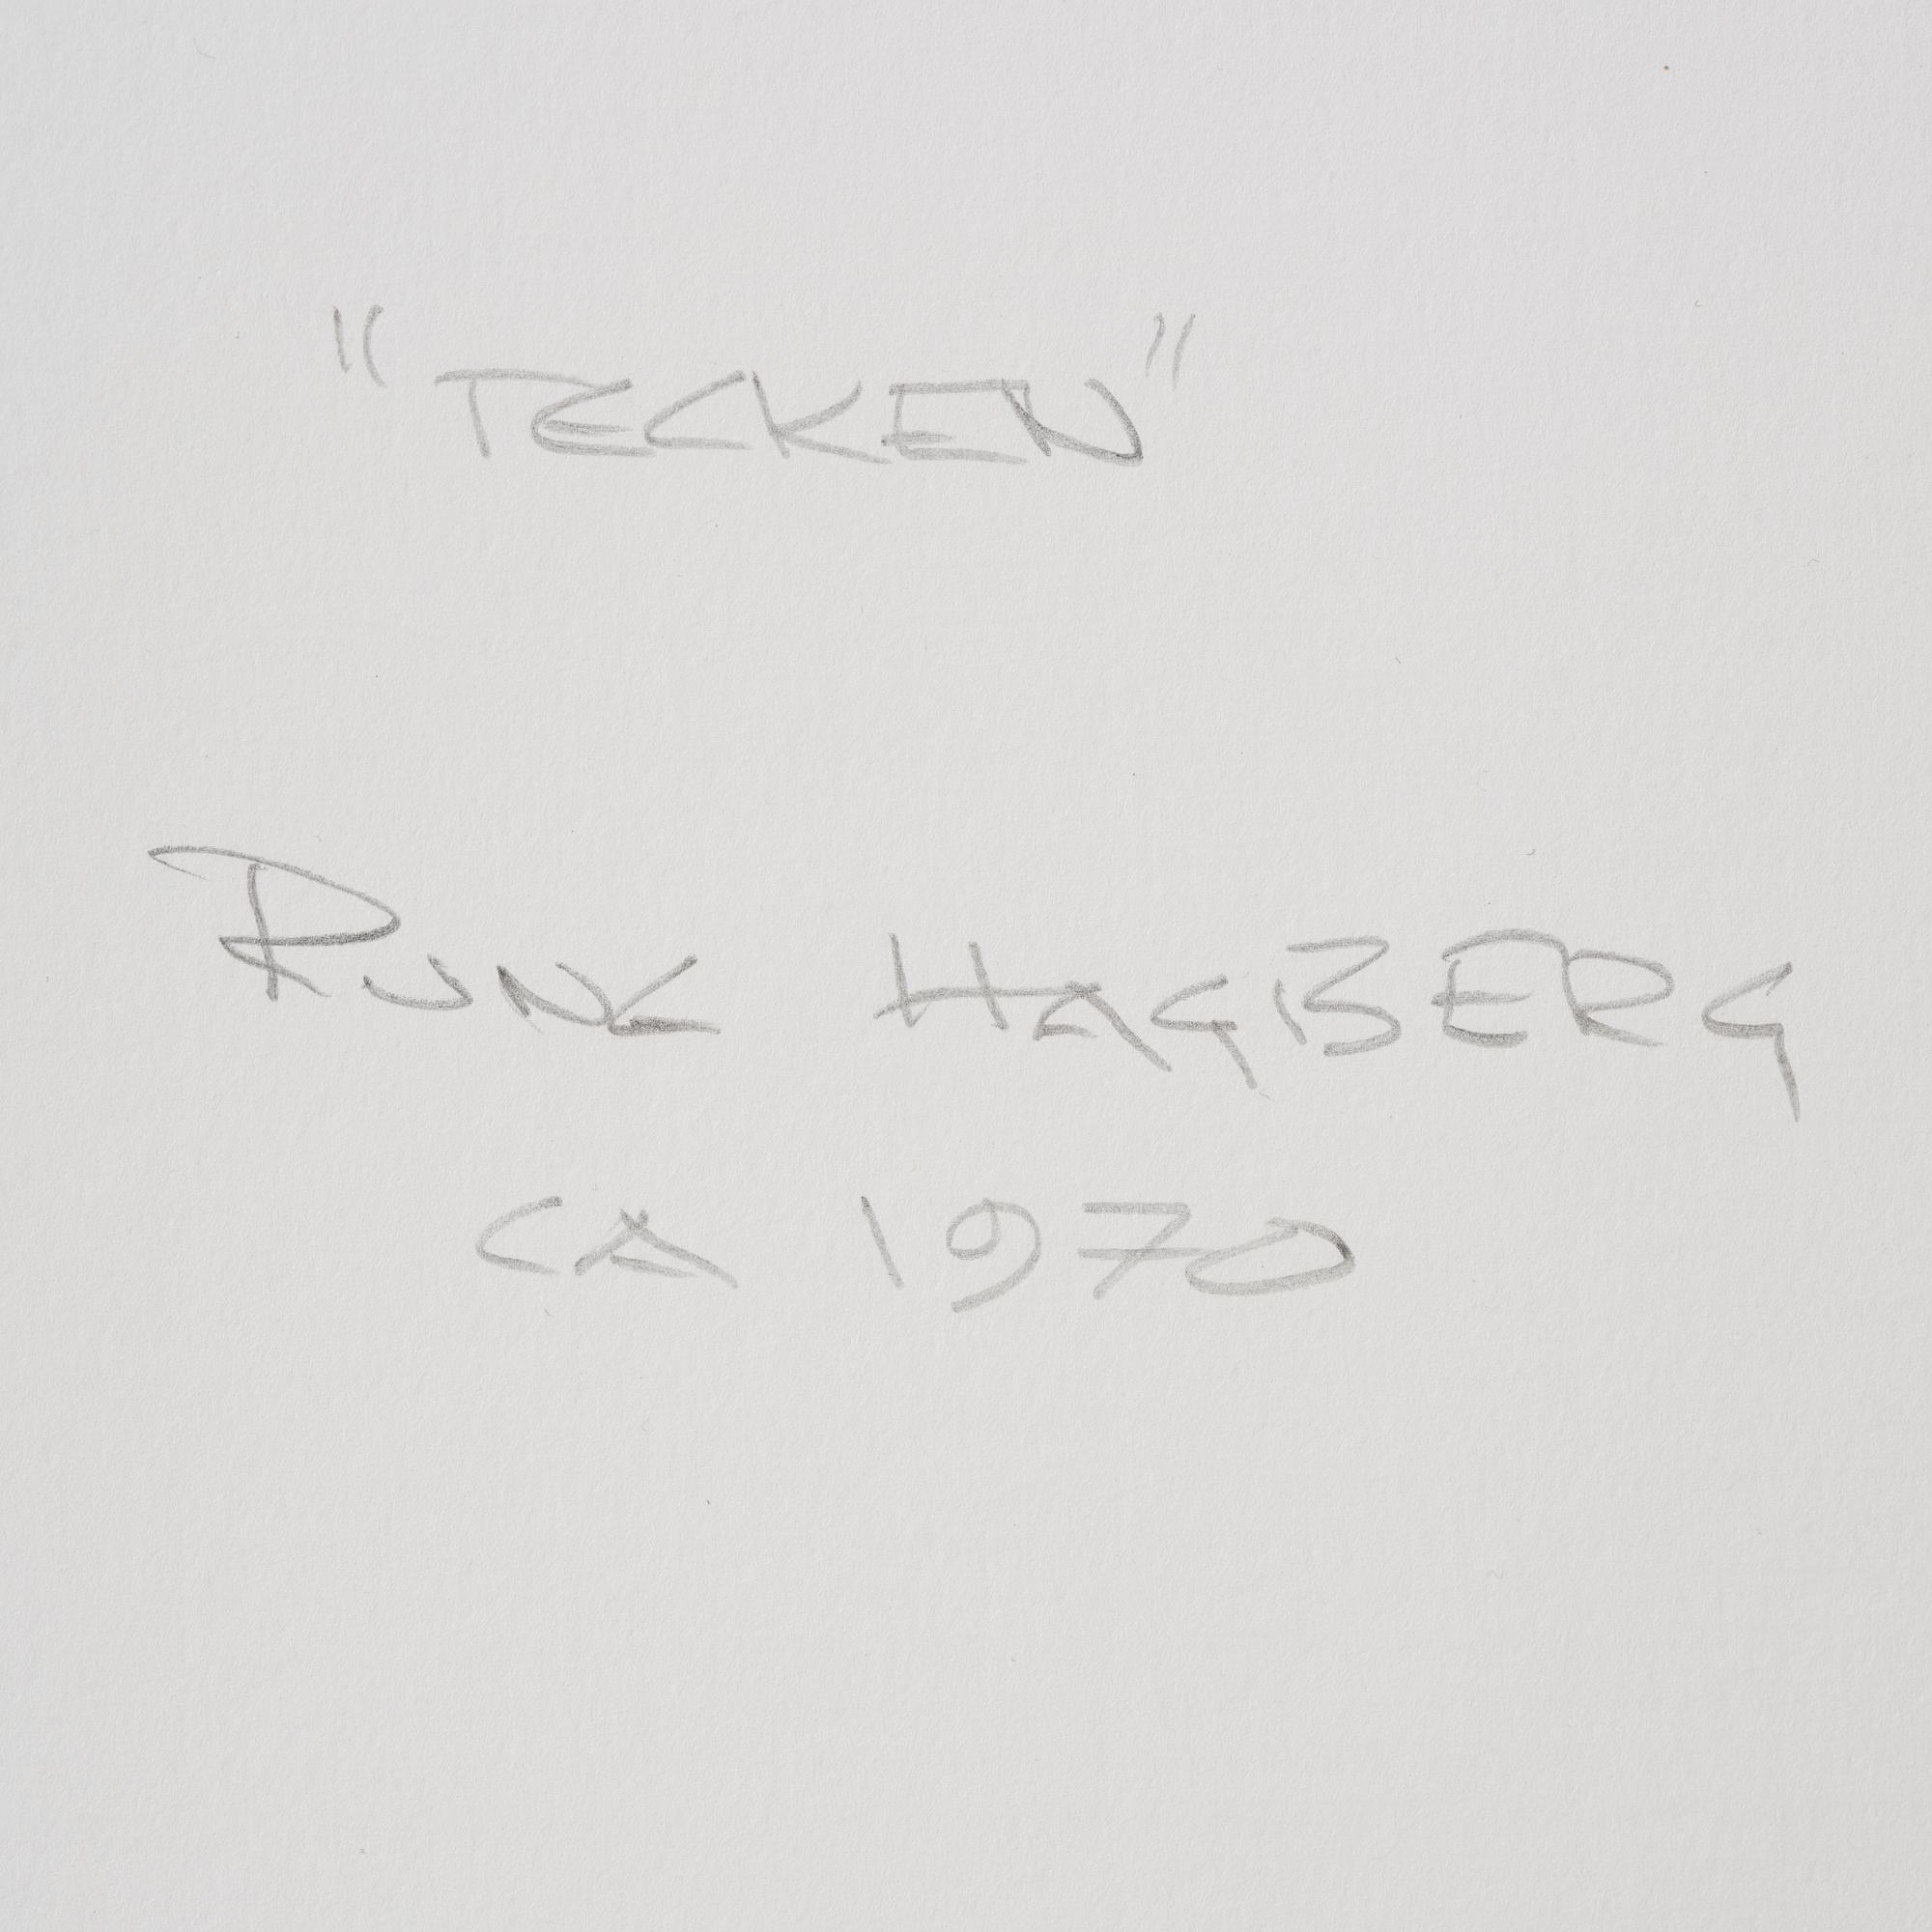 "TECKEN"
RUNE HAGBERG
CA 1970